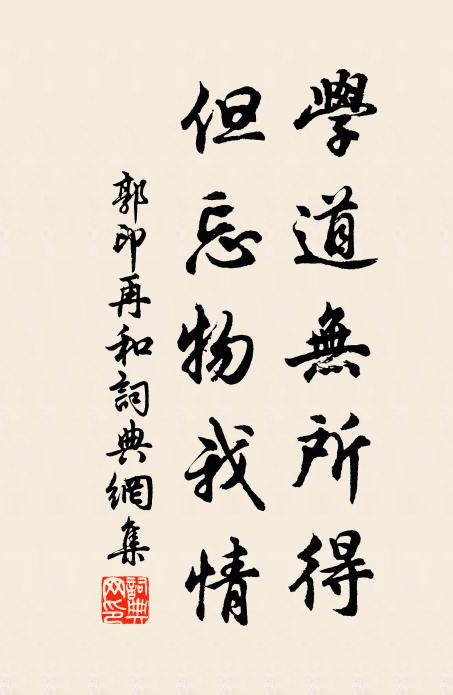 學道無所得
但忘物我情
郭印再和詞典網集
詞典網印